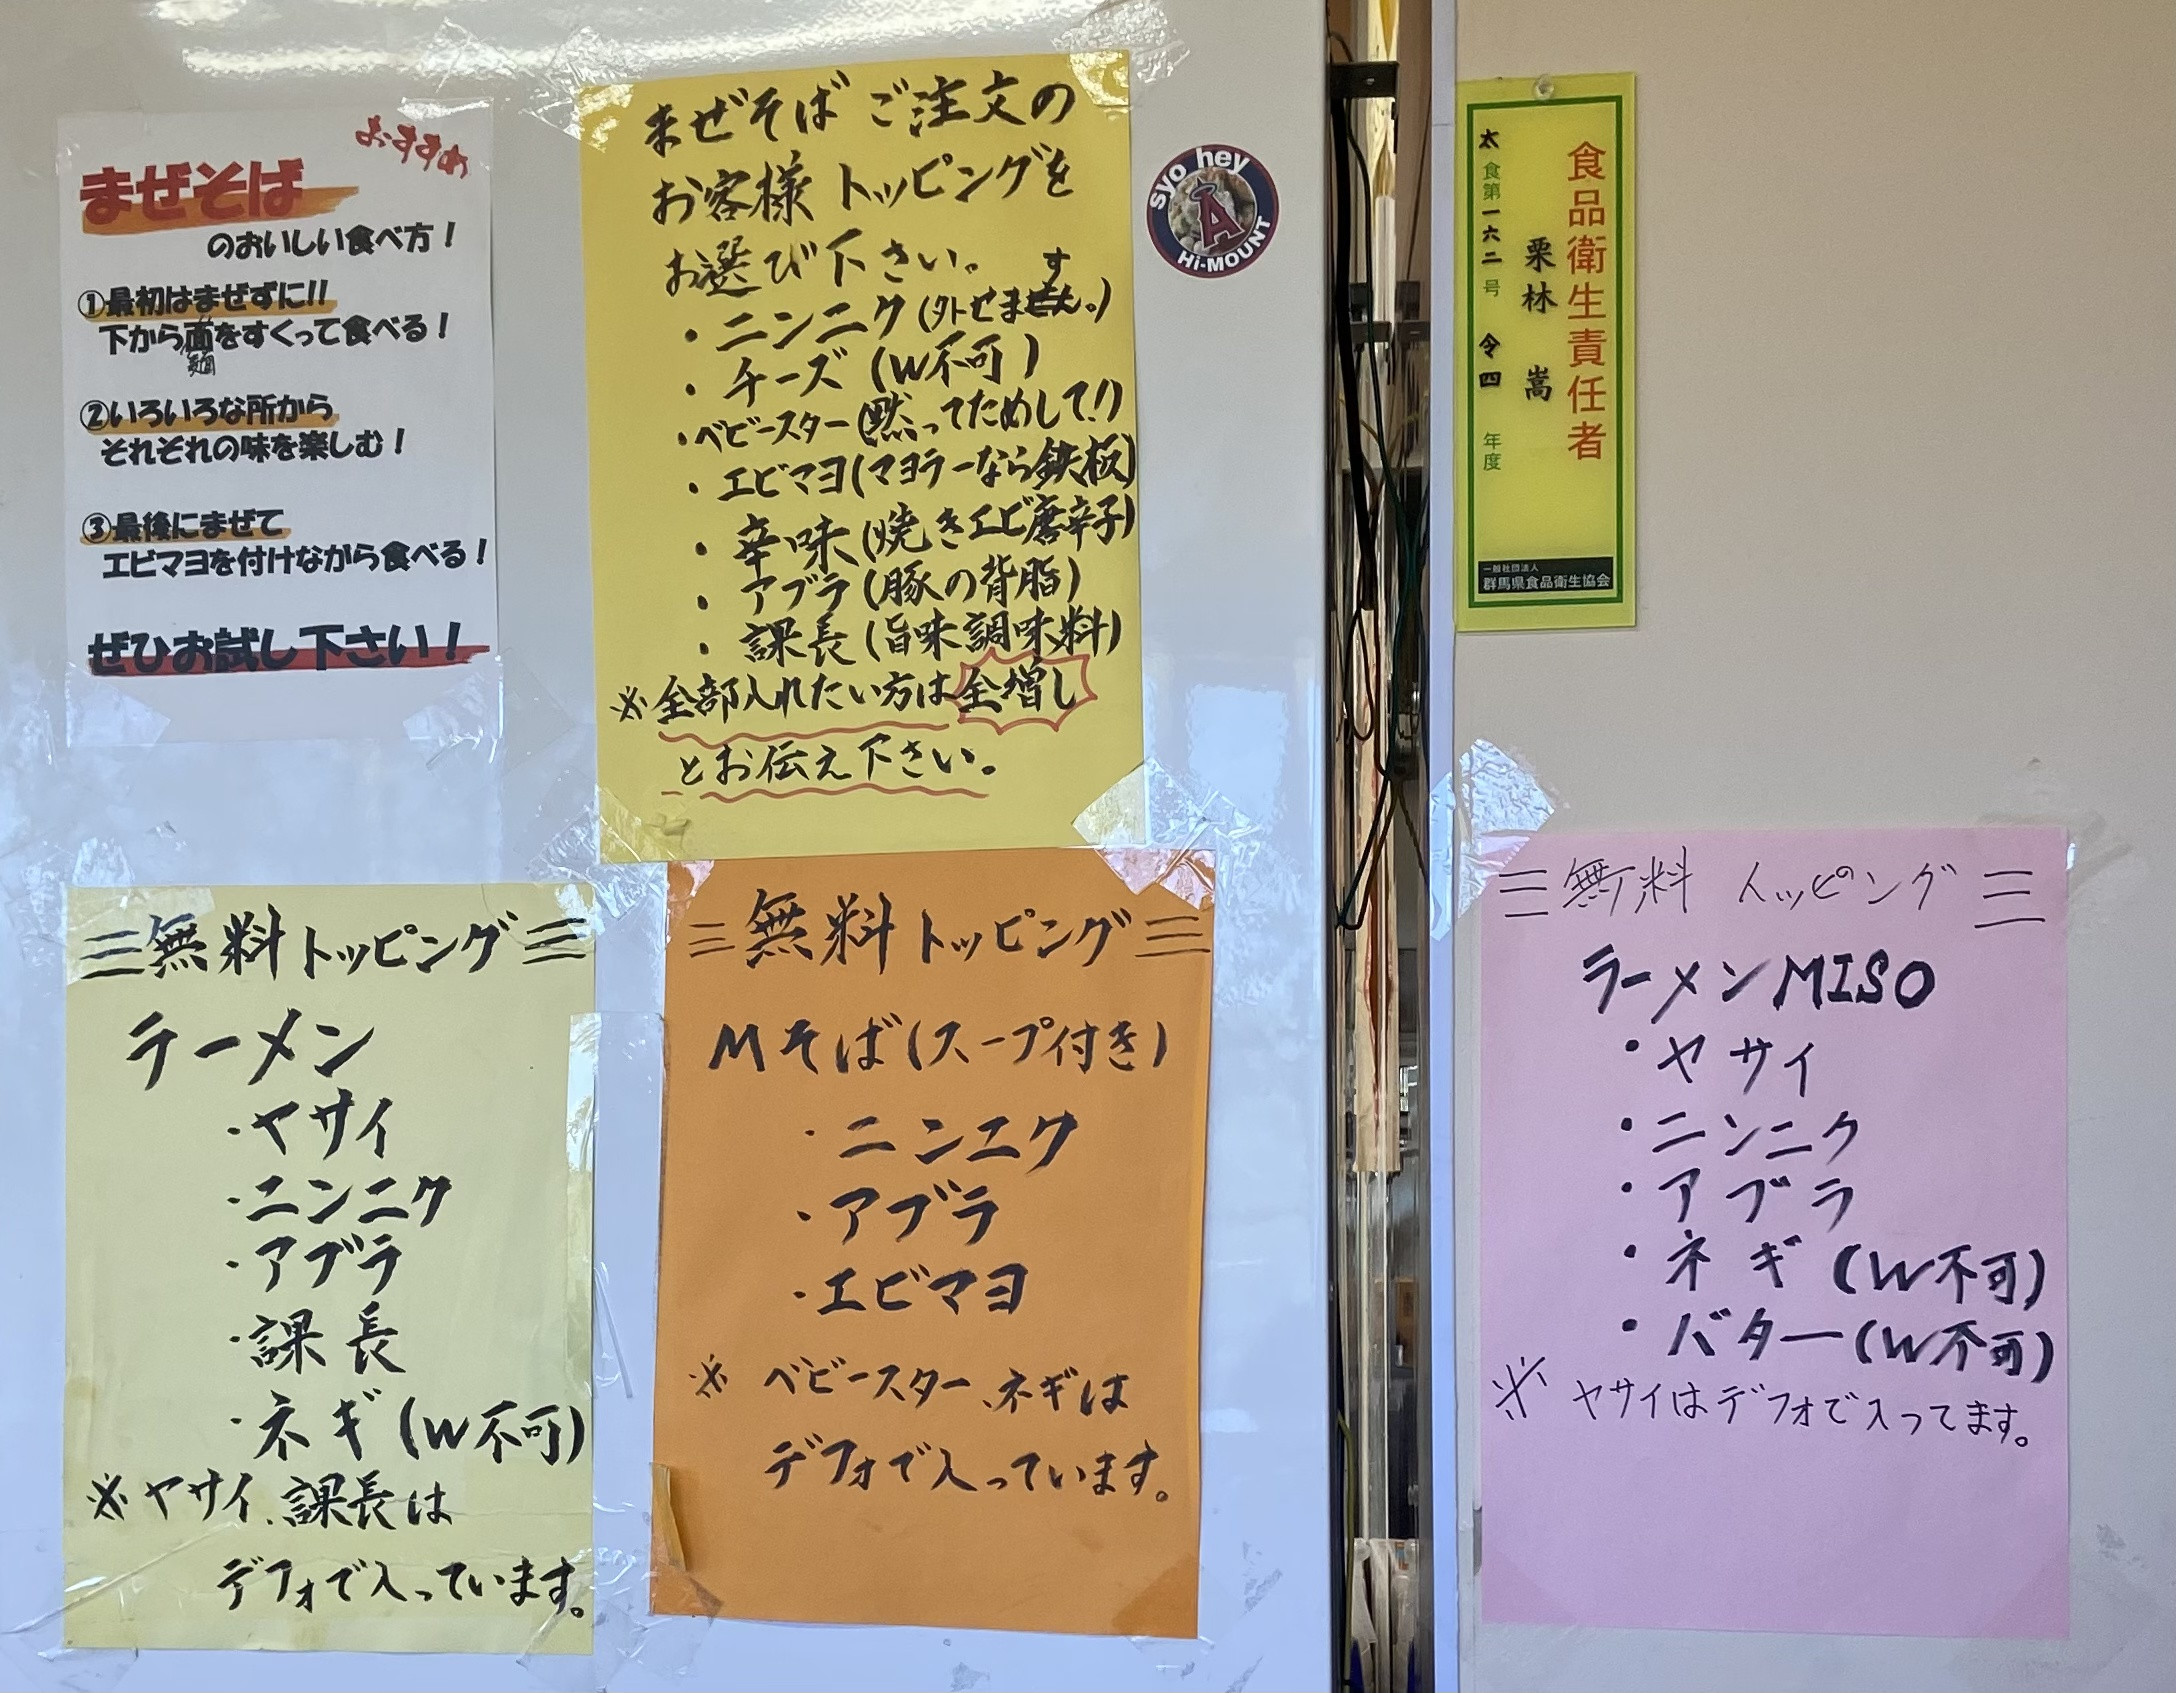 おすすめ
まぜそば
のおいしい食べ方！
①最初はまぜずに!!
下から面をすくって食べる！
麺
②いろいろな所から
それぞれの味を楽しむ！
③最後にまぜて
エビマヨを付けながら食べる！
ぜひお試し下さい！
まぜそばご注文の
お客様トッピングを
お選び下さい。
・ニンニク(外せません。)
す
・チーズ(W不可)
・ベビースター(黙ってためして!!)
・エビマヨ(マヨラーなら鉄板)
・辛味(焼きエビ唐辛子)
・アブラ(豚の背脂)
・課長(旨味調味料)
※全部入れたい方は全増し
とお伝え下さい。
syo hey
A
Hi-MOUNT
食品衛生責任者
栗林 嵩
太食第一六二号 令四年度
一般社団法人
群馬県食品衛生協会
三無料トッピング三
ラーメン
・ヤサイ
・ニンニク
・アブラ
・課長
・ネギ(W不可)
※ヤサイ、課長は
デフォで入っています。
三無料トッピング三
Mそば(スープ付き)
・ニンニク
・アブラ
・エビマヨ
※ベビースター、ネギは
デフォで入っています。
三無料トッピング三
ラーメンMISO
・ヤサイ
・ニンニク
・アブラ
・ネギ(W不可)
・バター(W不可)
※ヤサイはデフォで入ってます。